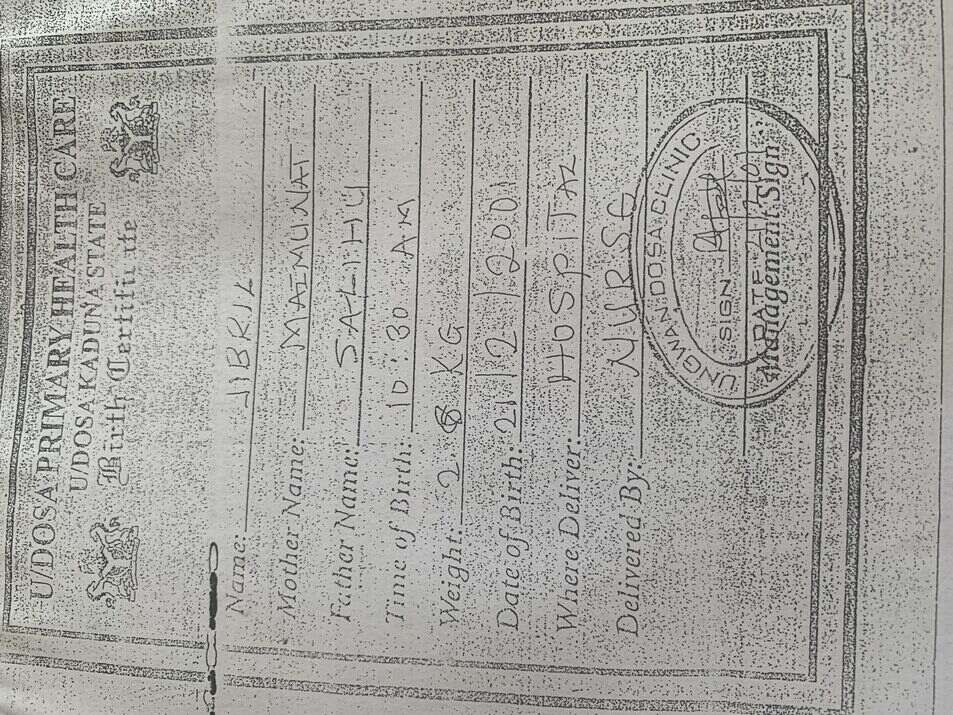 U/DOSA PRIMARY HEALTH CARE
U/DOSA KADUNA STATE
Birth Certificate
Name: JIBRIL
Mother Name: MAIMUNAT
Father Name: SALIHU
Time of Birth: 10:30 AM
Weight: 2.8 KG
Date of Birth: 21/2/2001
Where Deliver: HOSPITAL
Delivered By: NURSE
UNGWAN DOSA CLINIC
SIGN
DATE
Management Sign